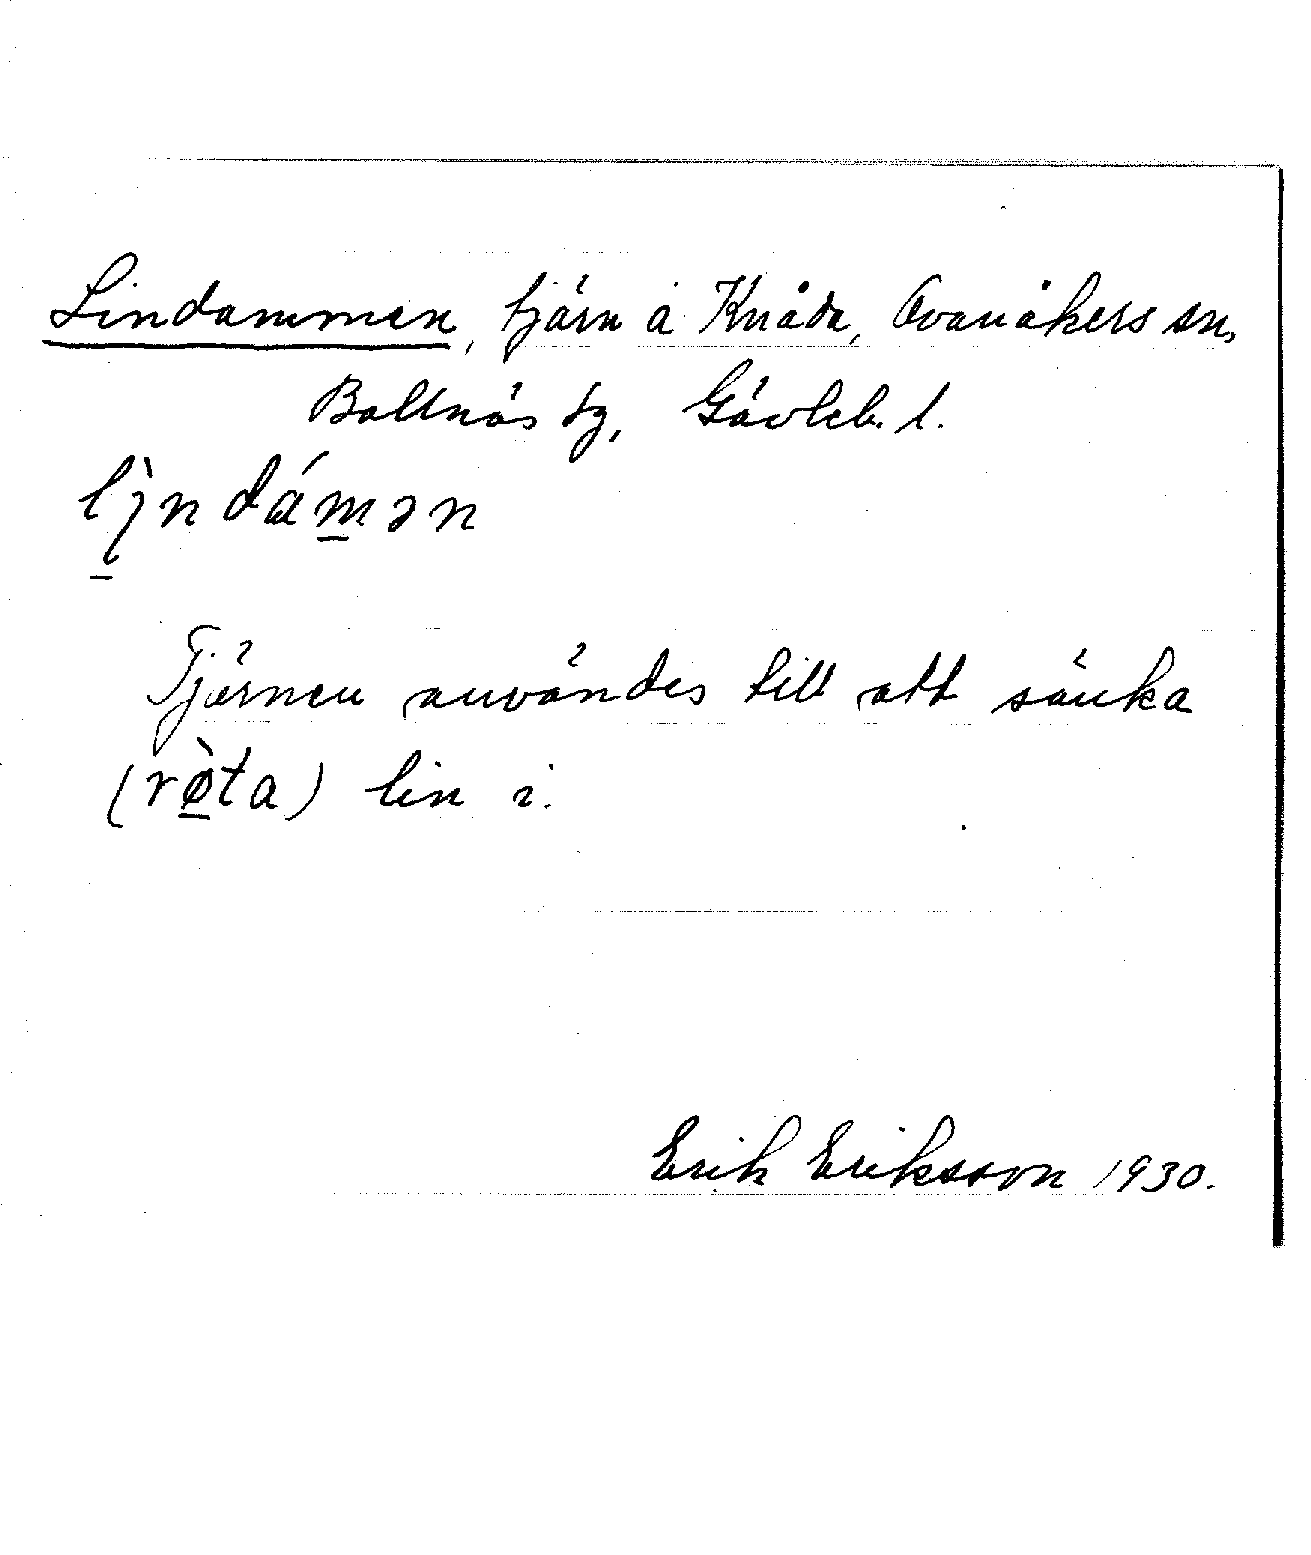 Lindammen, tjärn å Knåda, Ovanåkers sn,
Bollnäs tg, Gävleb. l.
lı̀ndámən
Tjärnen användes till att sänka
(rø̀ta) lin i.
Erik Eriksson 1930.